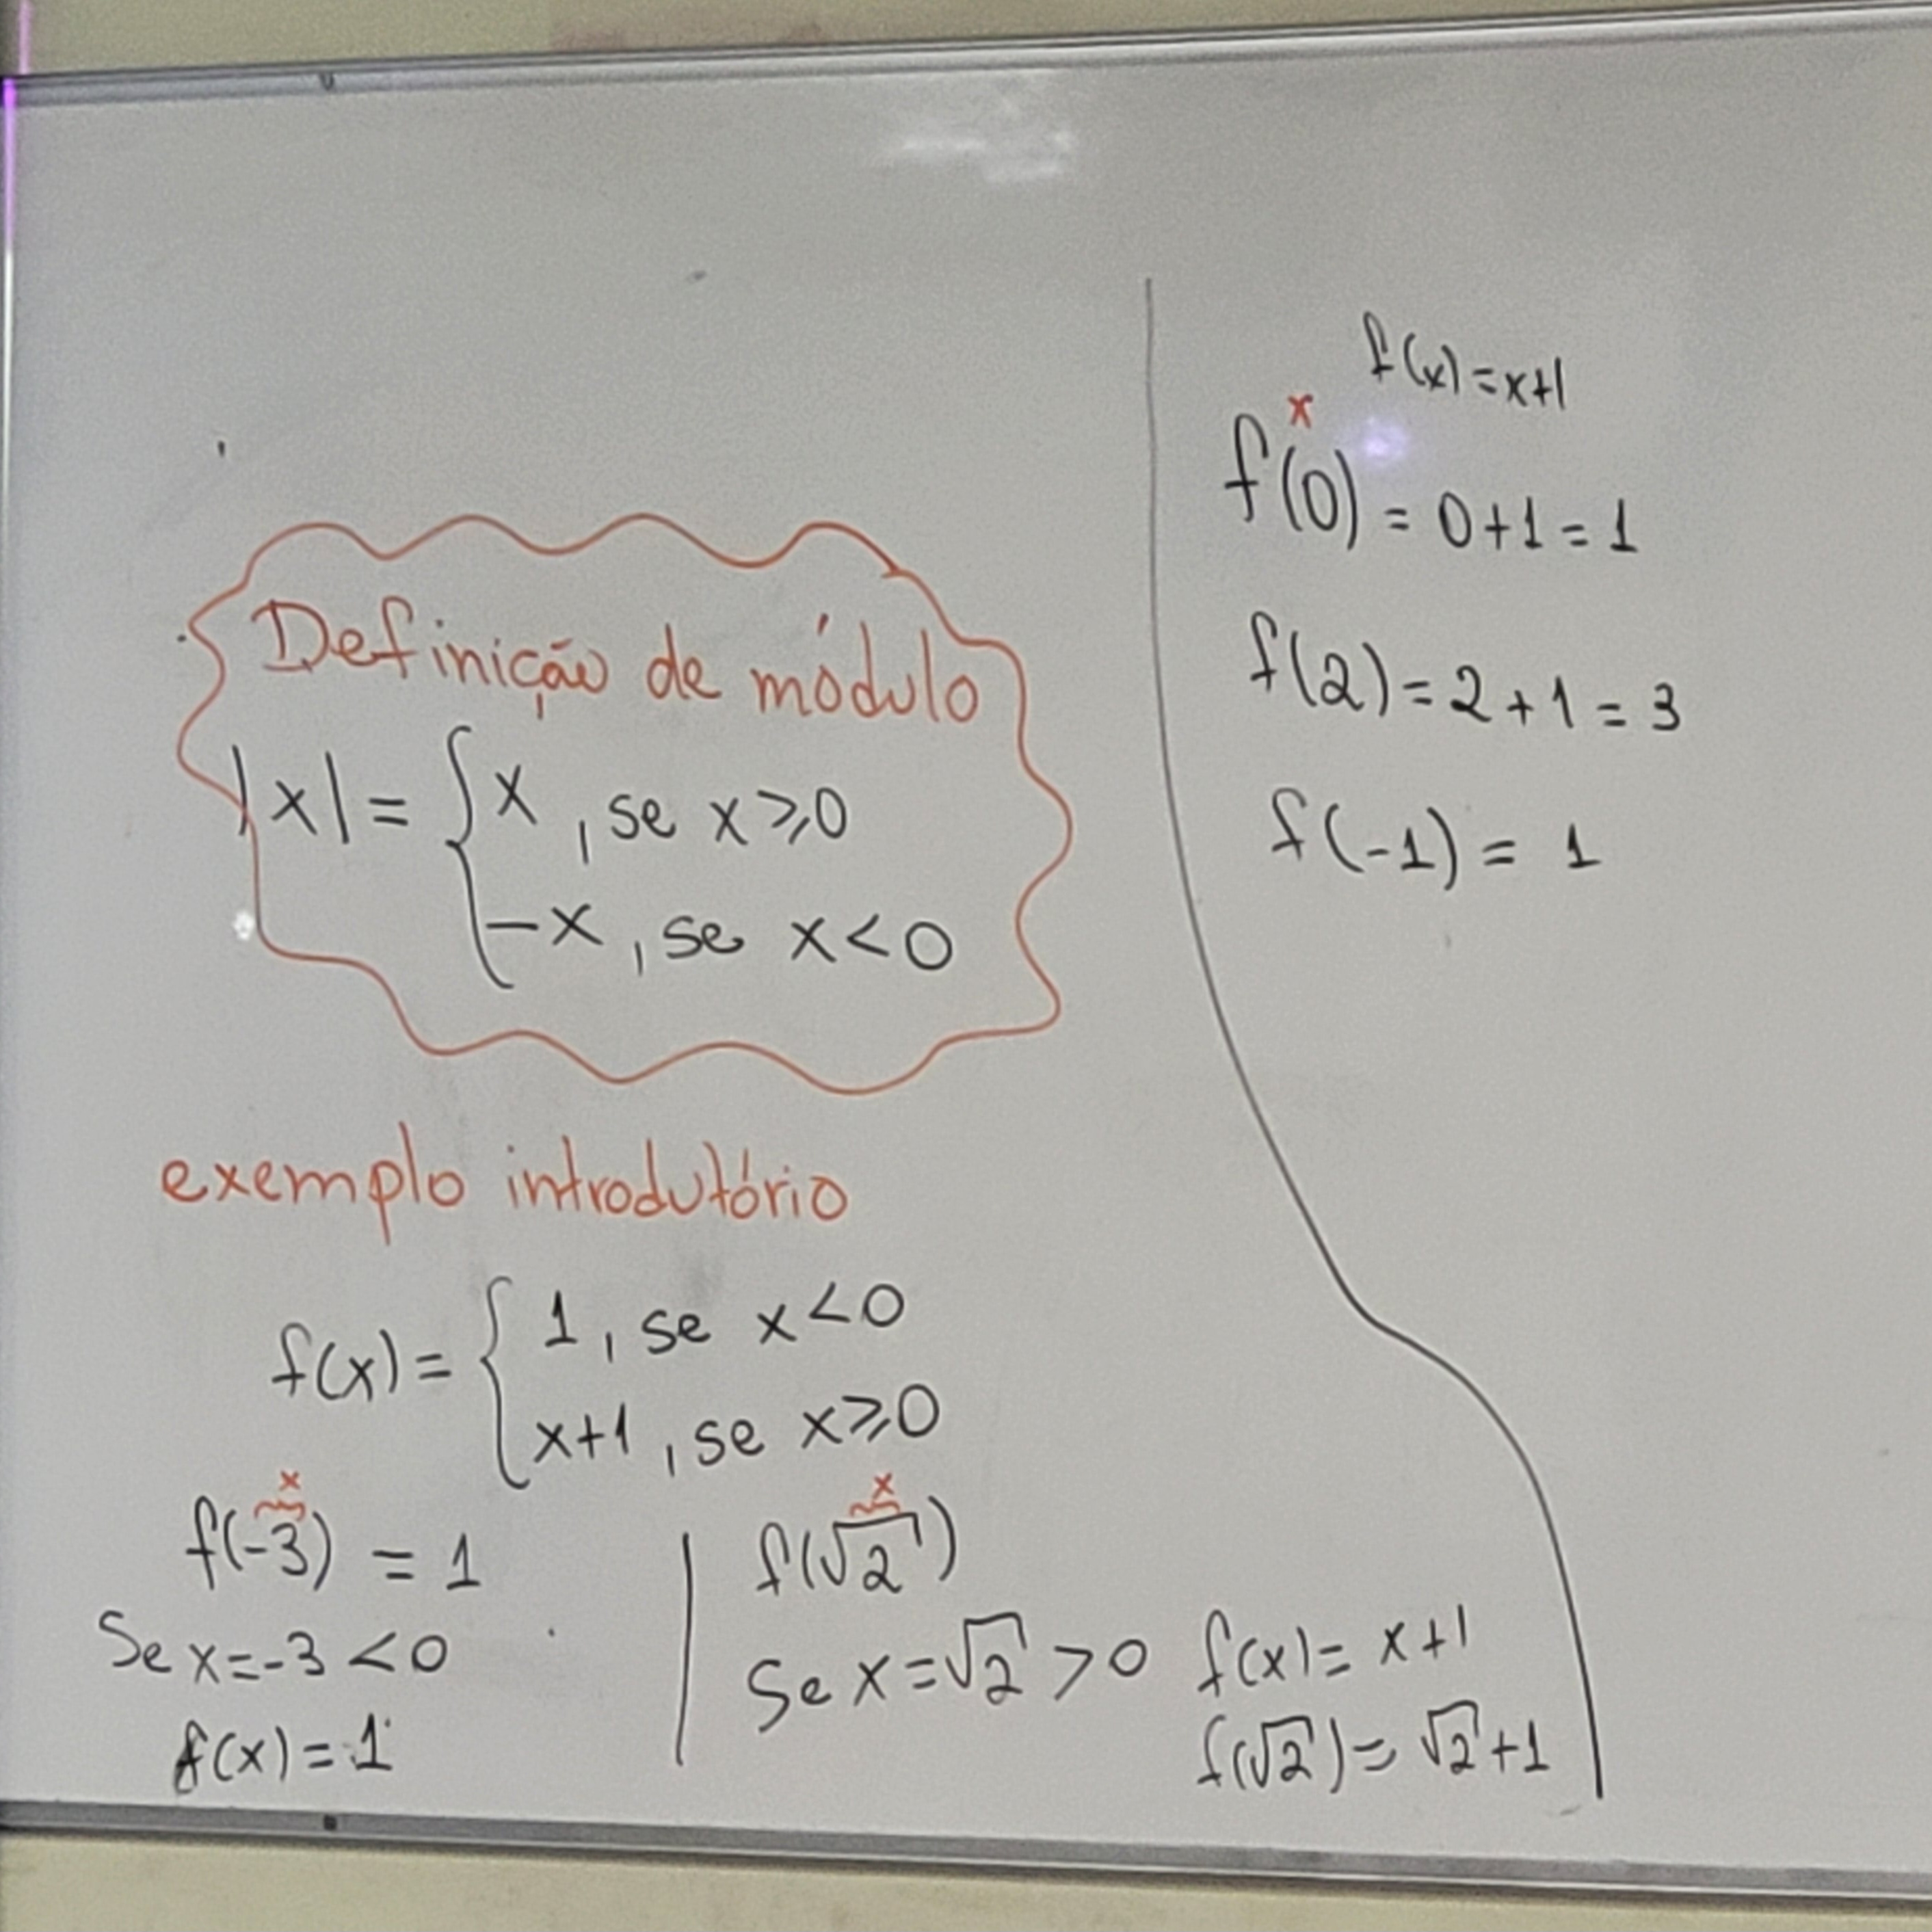 Definição de módulo
|x| = { x , se x ⩾ 0
-x , se x < 0
exemplo introdutório
f(x) = { 1 , se x < 0
x+1 , se x ⩾ 0
x
f(-3) = 1
Se x = -3 < 0
f(x) = 1
x
f(√2)
Se x = √2 > 0
f(x) = x + 1
f(√2) = √2 + 1
f(x) = x+1
x
f(0) = 0 + 1 = 1
f(2) = 2 + 1 = 3
f(-1) = 1